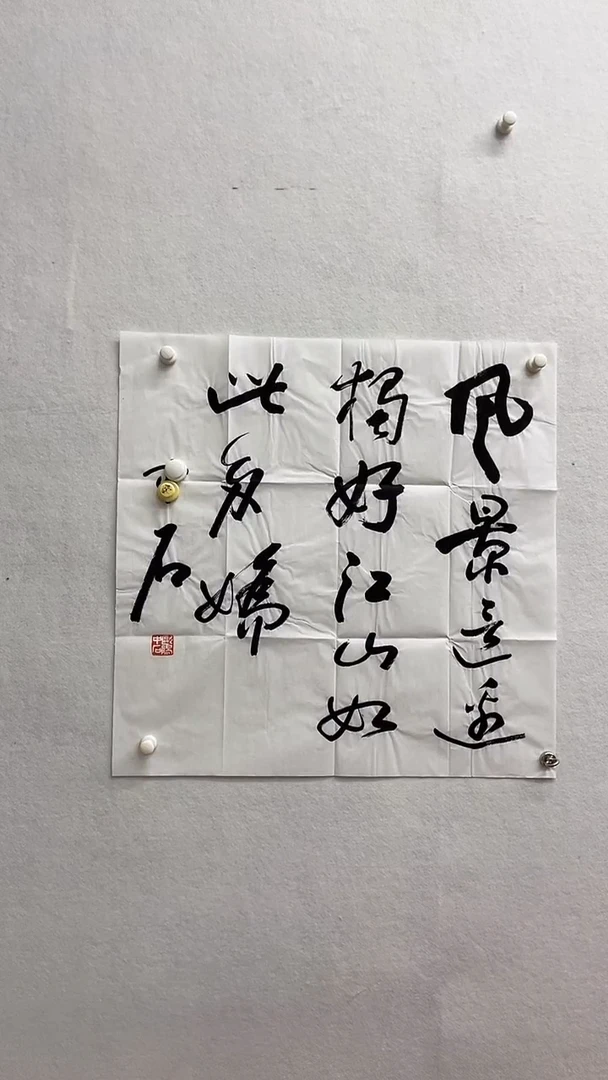 風景這邊
獨好江山如
此多嬌
石